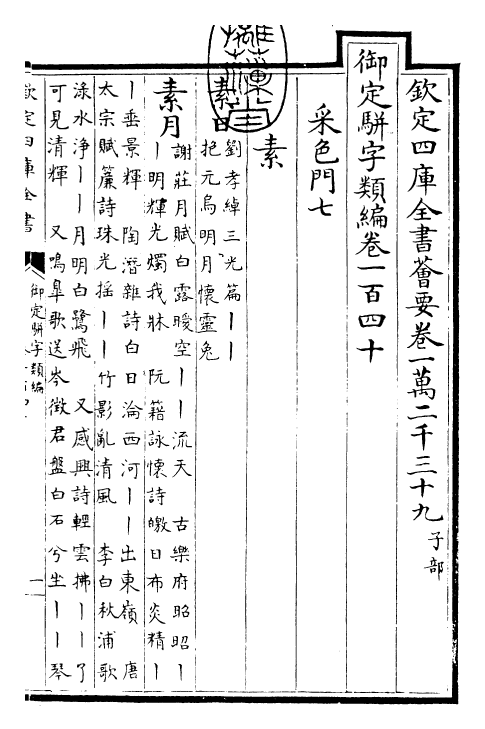 欽定四庫全書薈要卷一萬二千三十九子部
御定駢字類編卷一百四十
采色門七
素
素日劉孝綽三光篇丨丨
抱元烏明月懷靈兔
素月謝莊月賦白露曖空丨丨流天 古樂府昭昭丨
丨明輝光燭我牀 阮籍詠懷詩皦日布炎精丨
丨垂景輝 陶潛雜詩白日淪西河丨丨出東嶺 唐
太宗賦簾詩珠光搖丨丨竹影亂清風 李白秋浦歌
淥水淨丨丨月明白鷺飛 又感興詩輕雲拂丨丨了
可見清輝 又鳴臯歌送岑徵君盤白石兮坐丨丨琴
欽定四庫全書
御定駢字類編
一